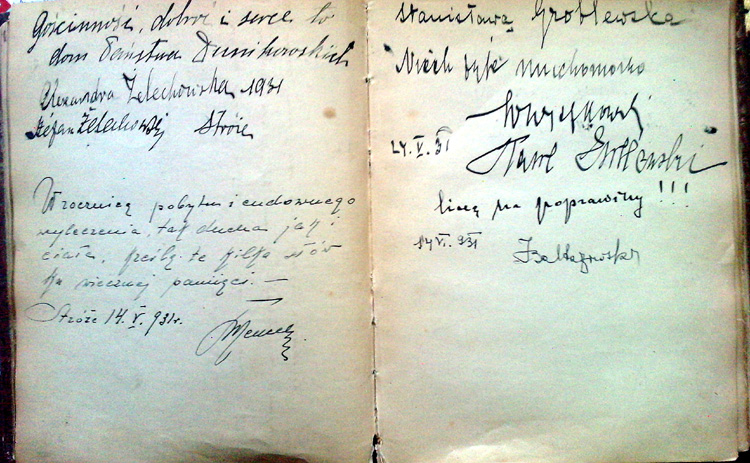 Gościnność, dobroć i serce to
dom Państwa Dunikowskich
Alexandra Żelechowska 1931
Stefan Żelechowski Stróże
W rocznicę pobytu i cudownego
wyleczenia, tak ducha jak i
ciała, kreślę te kilka słów
ku wiecznej pamięci. —
Stróże 14. V. 931r.
Stanisława Groblewska
Niech żyje muchomorko
24. V. 31
Paweł
liczę na poprawiny !!!
14 VI. 931